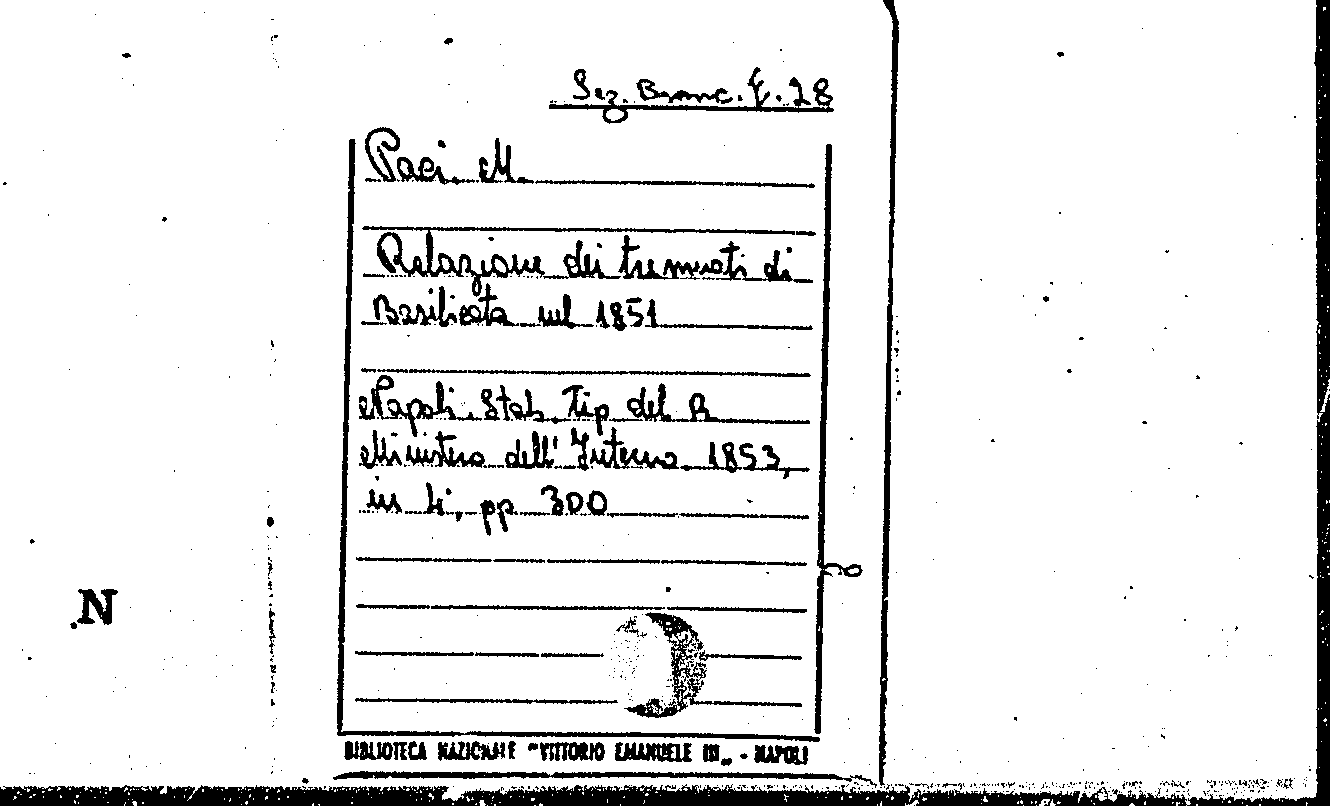 Sez. Branc. F. 28
Paci. M.
Relazione dei tremuoti di
Basilicata nel 1851
Napoli. Stab. Tip del R
Ministero dell' Interno. 1853,
in 4°, pp 300
N
BIBLIOTECA NAZIONALE "VITTORIO EMANUELE III„ - NAPOLI